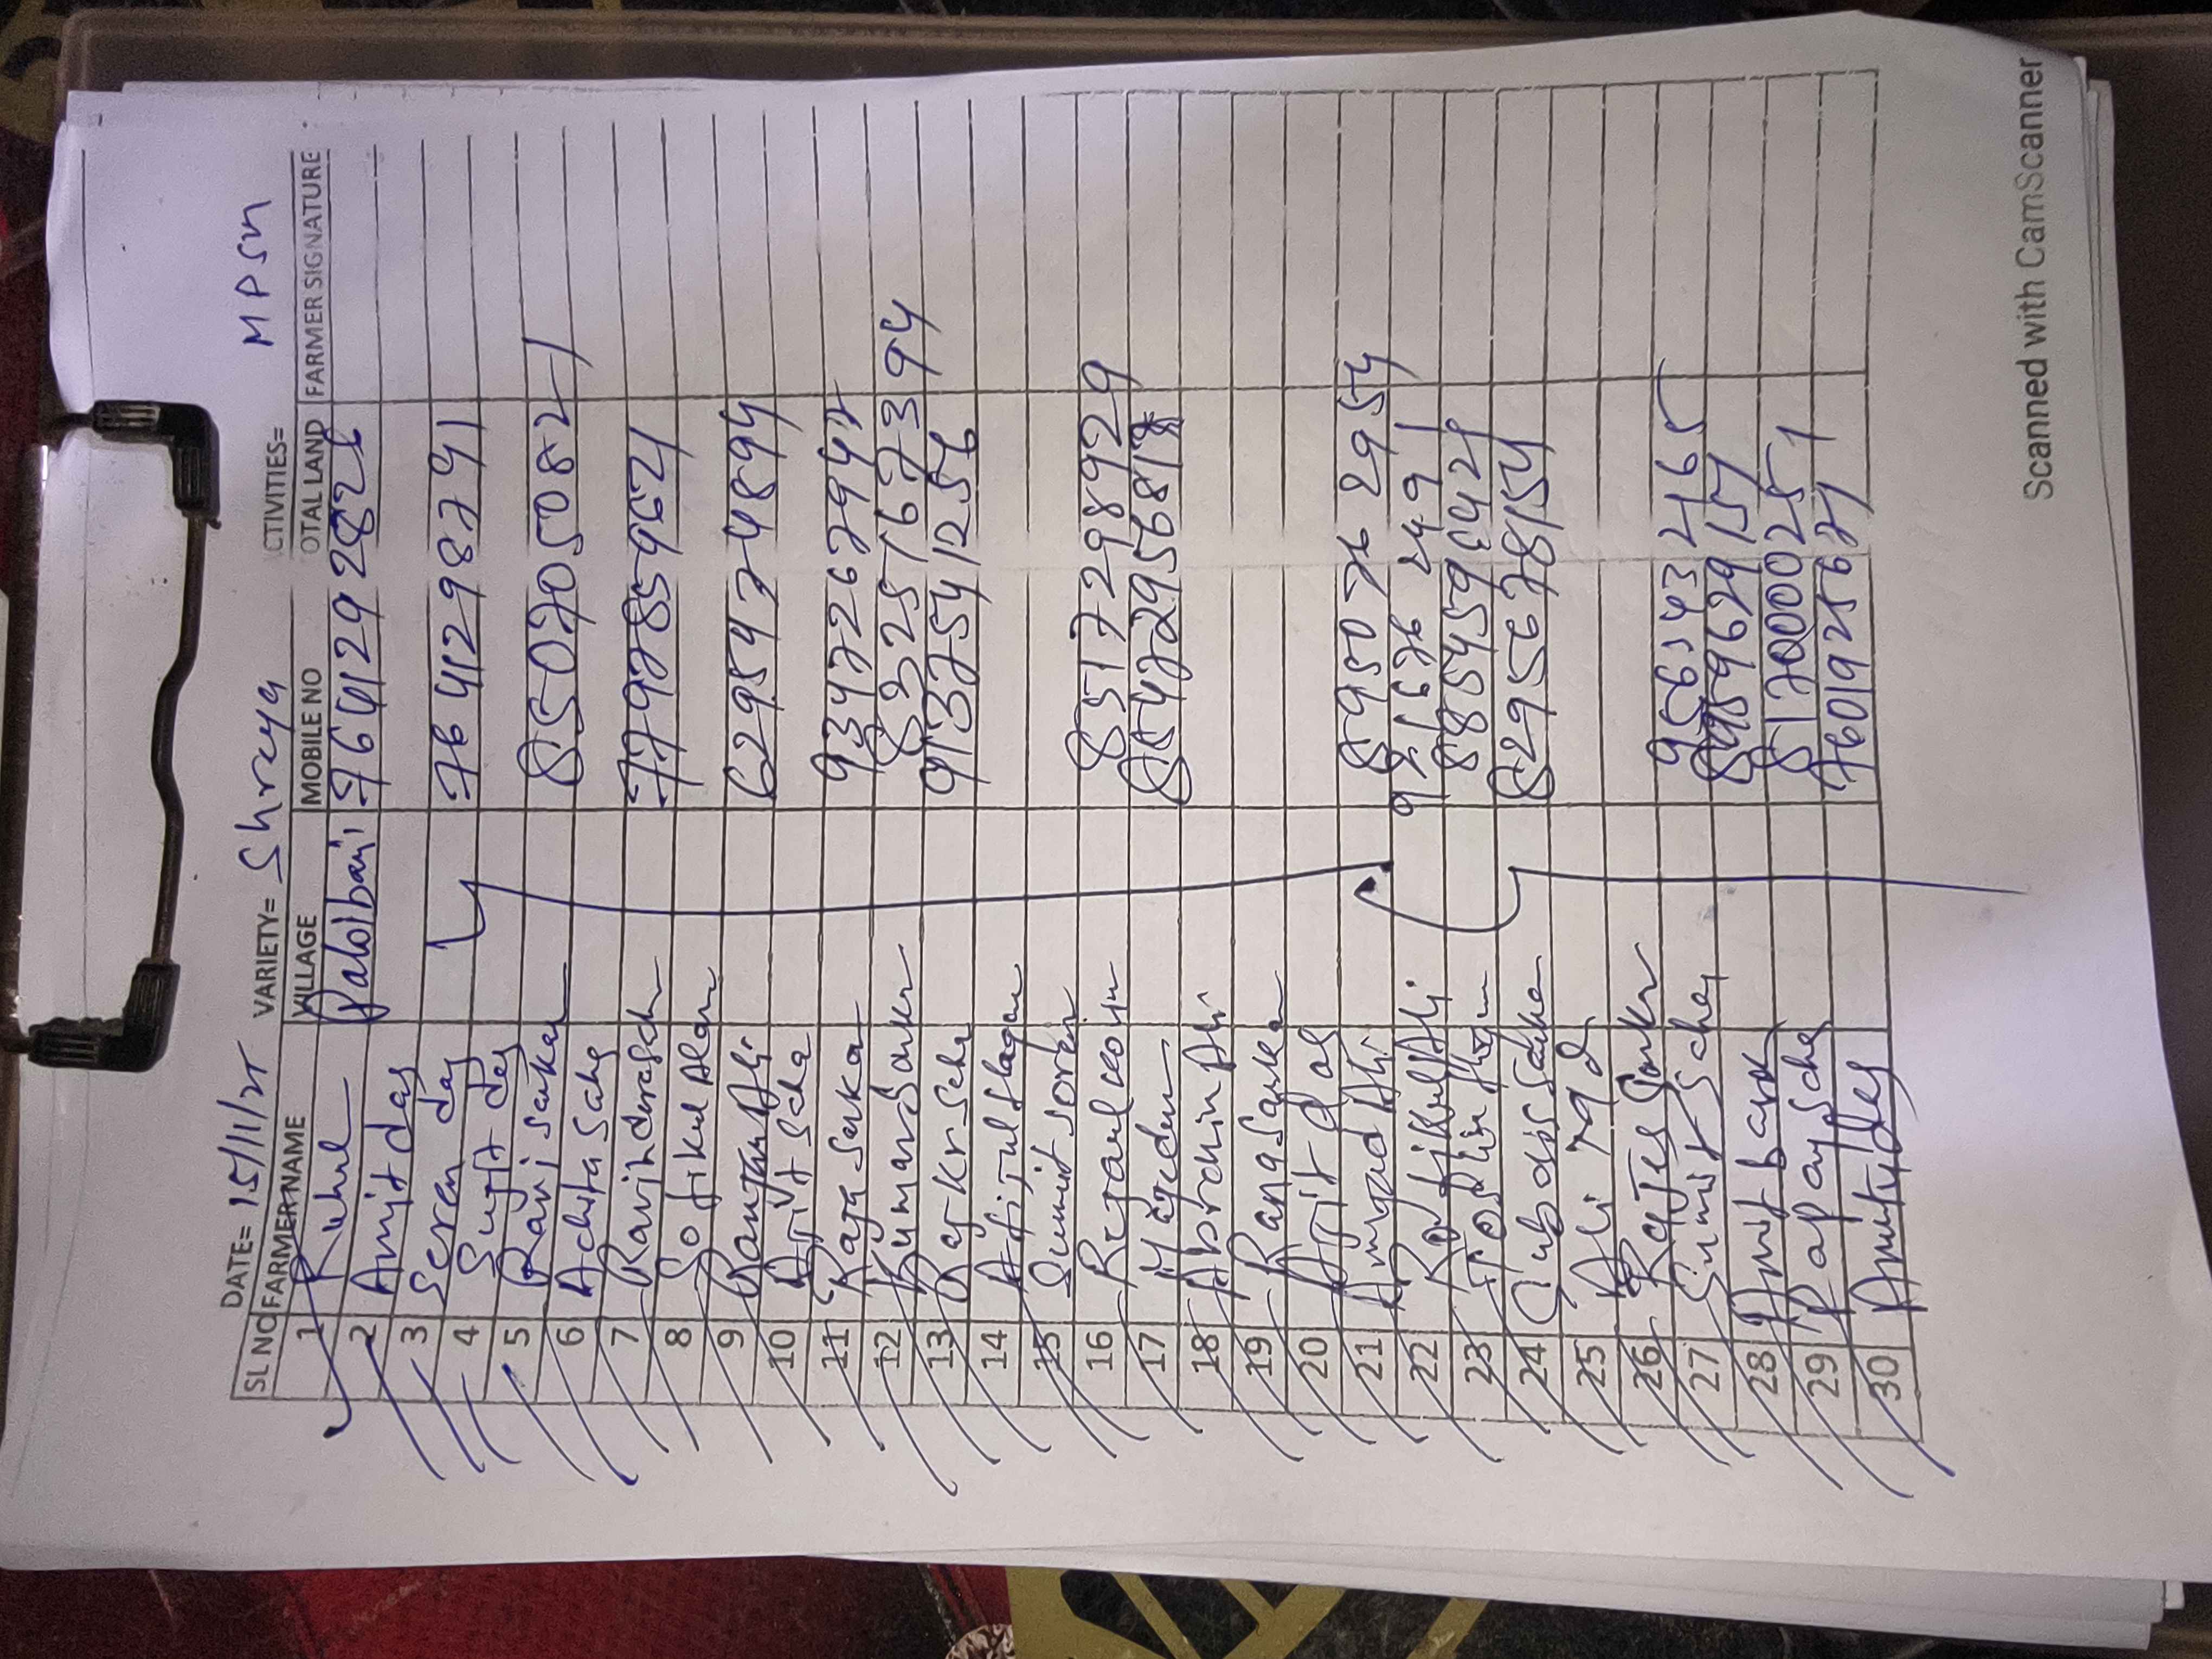 DATE= 15/11/25 VARIETY= Shreya CTIVITIES= MPSM
SL NO FARMER NAME VILLAGE MOBILE NO OTAL LAND FARMER SIGNATURE
1 Ruhul Palolbari 7641292828
2 Amit das
3 Seren das 7641298741
4 Sujit das
5 Ravi sarkar 8507050821
6 Achita Saha
7 Ravindersch 7797859621
8 Sofikul Alam
9 Rantu Ali 6295474894
10 Arjit Saha
11 Raja Sarkar 9347267942
12 Kumar Sarkar 8325167394
13 Raj Kr Saha 9137541256
14 Afijul
15 Sumit soren
16 Rejaul 8517298929
17 8547295681
18 Abrahim Ali
19 Rana Sarkar
20 Arjit Das
21 Amjad Ali 8950762954
22 Rofikul Ali 921576249
23 885459
24 Subois Sarkar 8295678154
25 Ali
26 Rajes Sarkar 956543 2465
27 Sumit Saha 8959629157
28 Amit basak 8170000251
29 Rajay Saha 7601925621
30 Amit des
Scanned with CamScanner